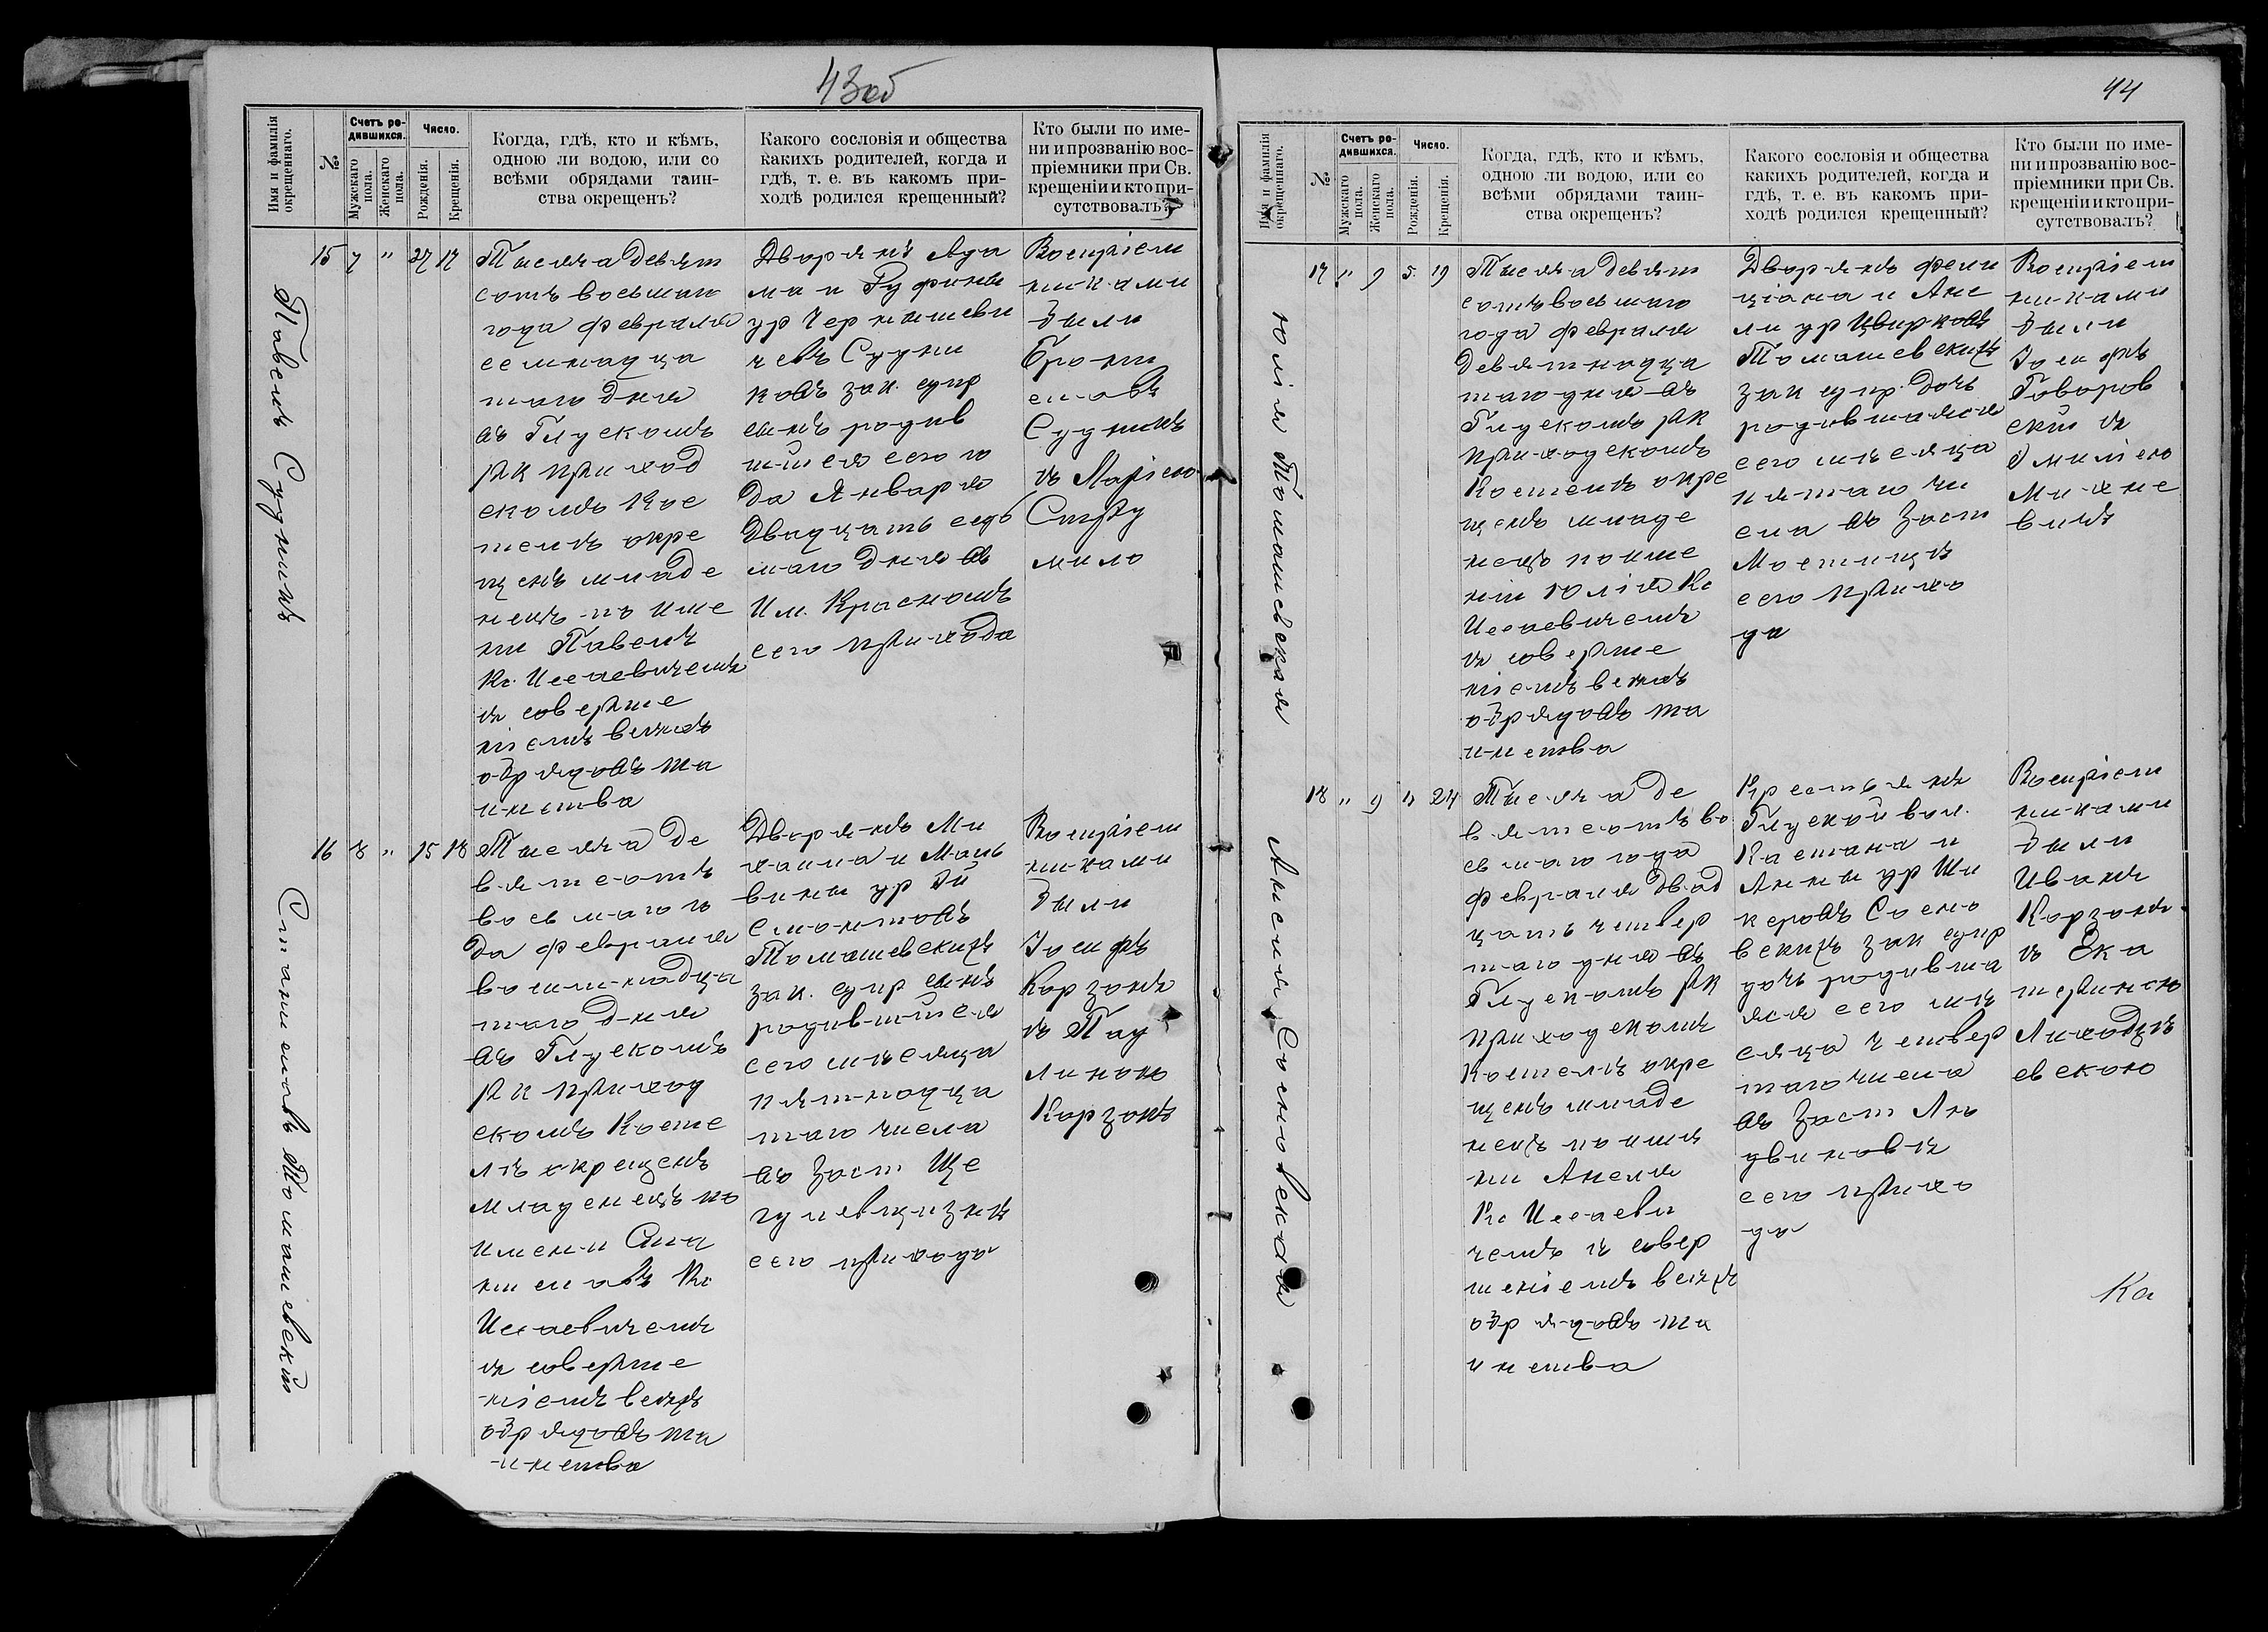 43 об
Имя и фамилія окрещеннаго.
№
Счетъ родившихся.
Мужскаго пола.
Женскаго пола.
Число.
Рожденія.
Крещенія.
Когда, гдѣ, кто и кѣмъ,
одною ли водою, или со
всѣми обрядами таин-
ства окрещенъ?
Какого сословія и общества
какихъ родителей, когда и
гдѣ, т. е. въ какомъ при-
ходѣ родился крещенный?
Кто были по име-
ни и прозванію вос-
пріемники при Св.
крещеніи и кто при-
сутствовалъ?
Павелъ Судникъ
15 7 " 27 17
Тысяча девят
сотъ восьмаго
года февраля
семнадца
таго дня
въ Глускомъ
рк приход
скомъ Кос
телѣ окре
щенъ младе
нецъ по име
ни Павелъ
Кс. Иссаевичемъ
съ соверше
ніемъ всѣхъ
обрядовъ та
инства
Дворянъ Ада
ма и Руфины
ур Чернышеви
чевъ Судни
ковъ зак. супр
сынъ родив
шійся сего го
да Января
двадцать седь
маго дня въ
Им. Красномъ
сего прихода
Воспріем
никами
были
Брони
славъ
Судникъ
съ Маріею
16 8 " 15 18
Станиславъ Томашевскій
Тысяча де
вятсотъ
восьмаго го
да февраля
восемнадца
таго дня
въ Глускомъ
рк приход
скомъ Косте
лѣ окрещенъ
младенецъ по
имени Ста
ниславъ Кс
Иссаевичемъ
съ соверше
ніемъ всѣхъ
обрядовъ та
инства
Дворянъ Ми
хаила и Маль
вины ур
Томашевскихъ
зак. супр сынъ
родившійся
сего мѣсяца
пятнадца
таго числа
въ Заст
сего прихода
Воспріем
никами
были
Іосифъ
Корзонъ
съ Пау
линою
Корзонъ
44
Имя и фамилія окрещеннаго.
№
Счетъ родившихся.
Мужскаго пола.
Женскаго пола.
Число.
Рожденія.
Крещенія.
Когда, гдѣ, кто и кѣмъ,
одною ли водою, или со
всѣми обрядами таин-
ства окрещенъ?
Какого сословія и общества
какихъ родителей, когда и
гдѣ, т. е. въ какомъ при-
ходѣ родился крещенный?
Кто были по име-
ни и прозванію вос-
пріемники при Св.
крещеніи и кто при-
сутствовалъ?
Юлія Томашевская
17 " 9 5 19
Тысяча девят
сотъ восьмаго
года февраля
девятнадца
таго дня въ
Глускомъ рк
приходскомъ
Костелѣ окре
щенъ младе
нецъ по име
ни Юлія Кс
Иссаевичемъ
съ соверше
ніемъ всѣхъ
обрядовъ та
инства
Дворянъ Фели
ціана и Ане
ли ур Цвирковъ
Томашевскихъ
зак супр. дочь
родившаяся
сего мѣсяца
пятаго чи
сла въ Заст
Мостищѣ
сего прихо
да
Воспріем
никами
были
Іосифъ
Говоров
скій съ
Эмиліею
Михне
вичъ
Анеля Сосновская
18 " 9 4 24
Тысяча де
вятсотъ во
сьмаго года
февраля двад
цать четвер
таго дня въ
Глускомъ рк
приходскомъ
Костелѣ окре
щенъ младе
нецъ по име
ни Анеля
Кс Иссаеви
чемъ съ совер
шеніемъ всѣхъ
обрядовъ та
инства
Крестьянъ
Глуской вол.
Каетана и
Анны ур Ши
керовъ Сосно
вскихъ зак супр
дочь родивша
яся сего мѣ
сяца четвер
таго числа
въ Заст Лю
двиновѣ
сего прихо
да
Воспріем
никами
были
Иванъ
Корзонъ
съ Ека
териною
Лиходзѣ
евскою
Ка